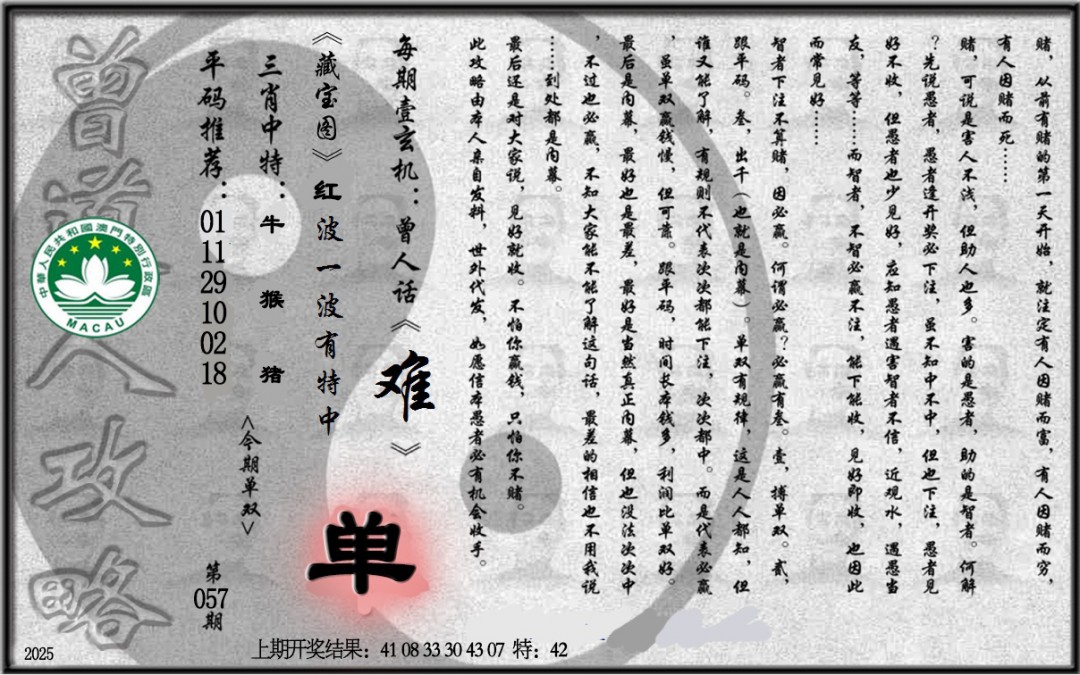 赌，从前有赌的第一天开始，就注定有人因赌而富，有人因赌而穷，
有人因赌而死……
赌，可说是害人不浅，但助人也多。害的是愚者，助的是智者。何解
？先说愚者，愚者逢开奖必下注，虽不知中不中，但也下注，愚者见
好不收，但愚者也少见好，应知愚者遇害智者不信，近观水，遇愚当
友，等等……而智者，不智必赢不注，能下能收，见好即收，也因此
而常见好……
智者下注不算赌，因必赢。何谓必赢？必赢有叁。壹，搏单双。贰，
跟平码。叁，出千（也就是内幕）。单双有规律，这是人人都知，但
谁又能了解，有规则不代表次次都能下注，次次都中。而是代表必赢
，虽单双赢钱慢，但可靠。跟平码，时间长本钱多，利润比单双好。
最后是内幕，最好也是最差，最好是当然真正内幕，但也没法次次中
，不过也必赢，不知大家能不能了解这句话，最差的相信也不用我说
……到处都是内幕。
最后还是对大家说，见好就收。不怕你赢钱，只怕你不赌。
此攻略由本人亲自发料，世外代发，如愿信本愚者必有机会收手。
每期壹玄机：曾人话《难》
《藏宝图》红波一波有特中
单
三肖中特：牛 猴 猪
<今期单双>
平码推荐：01 11 29 10 02 18
第057期
曾道人攻略
中華人民共和國澳門特別行政區
MACAU
2025
上期开奖结果：41 08 33 30 43 07 特：42